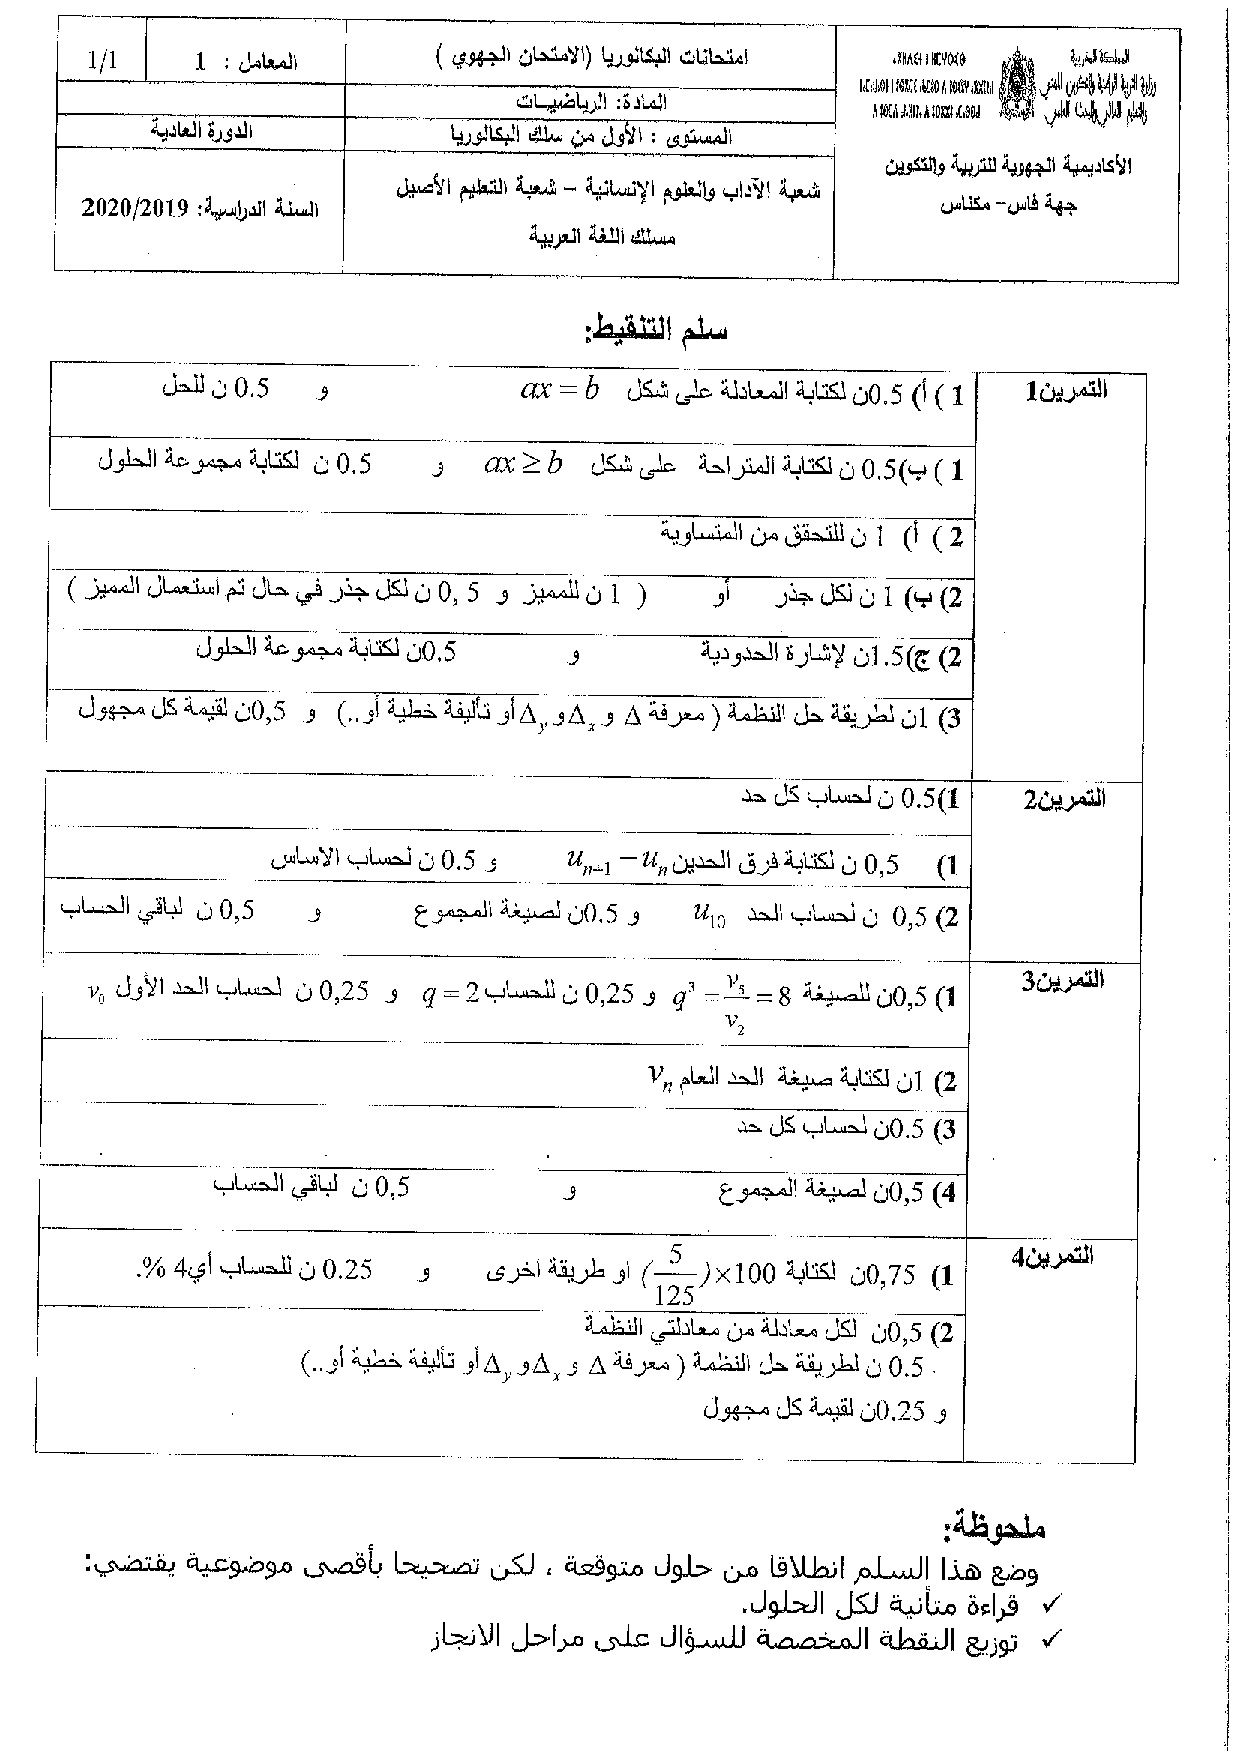 المملكة المغربية
وزارة التربية الوطنية والتكوين المهني
والتعليم العالي والبحث العلمي
الأكاديمية الجهوية للتربية والتكوين
جهة فاس- مكناس
امتحانات البكالوريا (الامتحان الجهوي )
المعامل : 1
1/1
المادة: الرياضيـــات
المستوى : الأول من سلك البكالوريا
الدورة العادية
شعبة الآداب والعلوم الإنسانية – شعبة التعليم الأصيل
مسلك اللغة العربية
السنة الدراسية: 2020/2019
سلم التنقيط:
التمرين1
1 ) أ) 0.5ن لكتابة المعادلة على شكل ax = b و 0.5 ن للحل
1 ) ب)0.5 ن لكتابة المتراحة على شكل ax ≥ b و 0.5 ن لكتابة مجموعة الحلول
2 ) أ) 1 ن للتحقق من المتساوية
2) ب) 1 ن لكل جذر أو ( 1 ن للمميز و 0, 5 ن لكل جذر في حال تم استعمال المميز )
2) ج)1.5ن لإشارة الحدودية و 0.5ن لكتابة مجموعة الحلول
3) 1ن لطريقة حل النظمة ( معرفة Δ و Δx و Δy أو تأليفة خطية أو..) و 0,5ن لقيمة كل مجهول
التمرين2
1)0.5 ن لحساب كل حد
1) 0,5 ن لكتابة فرق الحدين un+1 − un و 0.5 ن لحساب الاساس
2) 0,5 ن لحساب الحد u10 و 0.5ن لصيغة المجموع و 0,5 ن لباقي الحساب
التمرين3
1) 0,5ن للصيغة q³ = v5/v2 = 8 و 0,25 ن للحساب q = 2 و 0,25 ن لحساب الحد الأول v0
2) 1ن لكتابة صيغة الحد العام vn
3) 0.5ن لحساب كل حد
4) 0,5ن لصيغة المجموع و 0,5 ن لباقي الحساب
التمرين4
1) 0,75ن لكتابة (5/125)×100 او طريقة اخرى و 0.25 ن للحساب أي4 %.
2) 0,5ن لكل معادلة من معادلتي النظمة
0.5 ن لطريقة حل النظمة ( معرفة Δ و Δx و Δy أو تأليفة خطية أو..)
و 0.25ن لقيمة كل مجهول
ملحوظة:
وضع هذا السلم انطلاقا من حلول متوقعة ، لكن تصحيحا بأقصى موضوعية يقتضي:
✓ قراءة متأنية لكل الحلول.
✓ توزيع النقطة المخصصة للسؤال على مراحل الانجاز